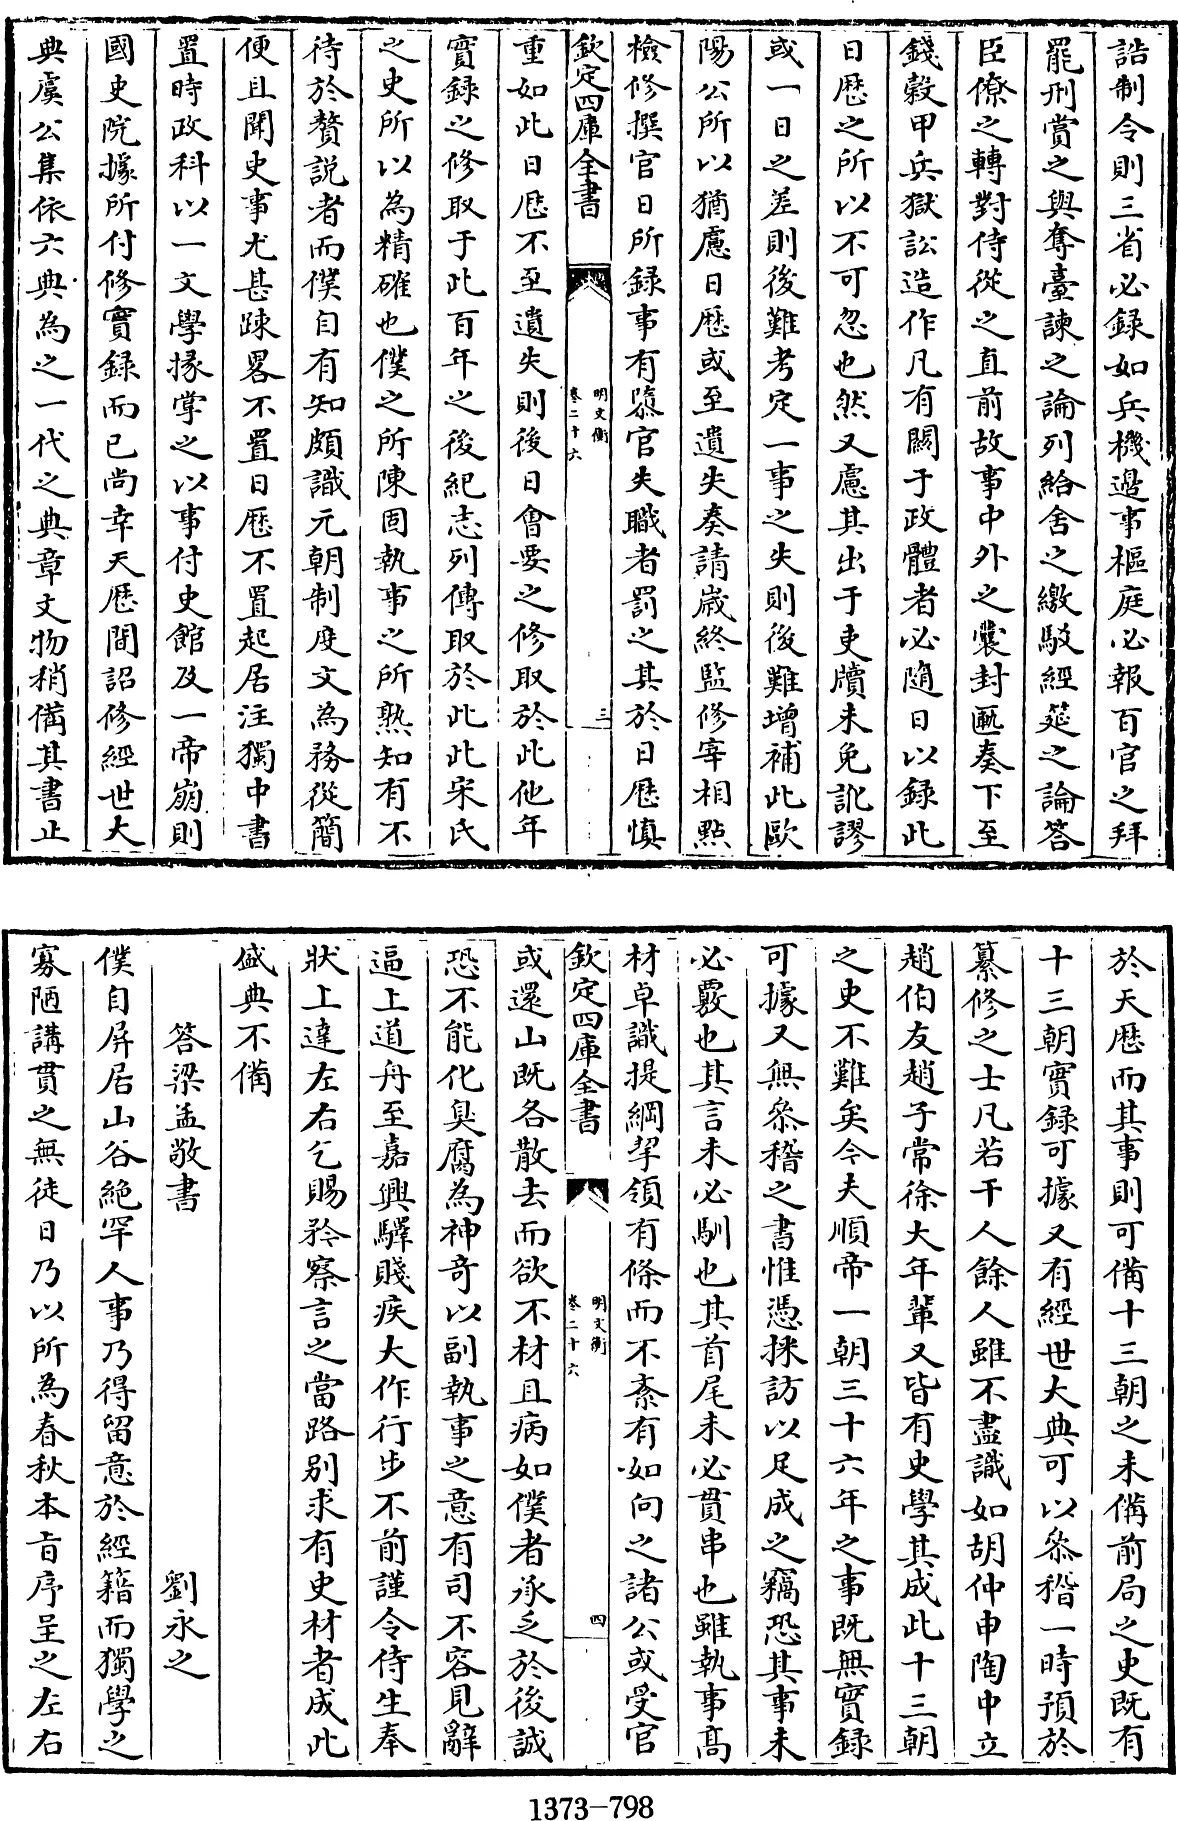 誥制令則三省必録如兵機邊事樞庭必報百官之拜
罷刑賞之與奪臺諫之論列給舍之繳駁經筵之論答
臣僚之轉對侍從之直前故事中外之囊封匭奏下至
錢穀甲兵獄訟造作凡有關于政體者必隨日以録此
日厯之所以不可忽也然又慮其出于吏牘未免訛謬
或一日之差則後難考定一事之失則後難增補此歐
陽公所以猶慮日厯或至遺失奏請歲終監修宰相點
檢修撰官日所録事有隳官失職者罰之其於日厯慎
欽定四庫全書
明文衡
卷二十六
三
重如此日厯不至遺失則後日會要之修取於此他年
實録之修取于此百年之後紀志列傳取於此此宋氏
之史所以為精確也僕之所陳固執事之所熟知有不
待於贅説者而僕自有知頗識元朝制度文為務從簡
便且聞史事尤甚踈畧不置日厯不置起居注獨中書
置時政科以一文學掾掌之以事付史館及一帝崩則
國史院據所付修實録而已尚幸天厯間詔修經世大
典虞公集依六典為之一代之典章文物稍備其書止
於天厯而其事則可備十三朝之未備前局之史既有
十三朝實録可據又有經世大典可以叅稽一時預於
纂修之士凡若干人餘人雖不盡識如胡仲申陶中立
趙伯友趙子常徐大年輩又皆有史學其成此十三朝
之史不難矣今夫順帝一朝三十六年之事既無實録
可據又無叅稽之書惟憑採訪以足成之竊恐其事未
必覈也其言未必馴也其首尾未必貫串也雖執事髙
材卓識提綱挈領有條而不紊有如向之諸公或受官
欽定四庫全書
明文衡
卷二十六
四
或還山既各散去而欲不材且病如僕者承乏於後誠
恐不能化臭腐為神奇以副執事之意有司不容見辭
逼上道舟至嘉興驛賤疾大作行步不前謹令侍生奉
狀上達左右乞賜矜察言之當路别求有史材者成此
盛典不備
答梁孟敬書　劉永之
僕自屏居山谷絶罕人事乃得留意於經籍而獨學之
寡陋講貫之無徒日乃以所為春秋本旨序呈之左右
1373-798